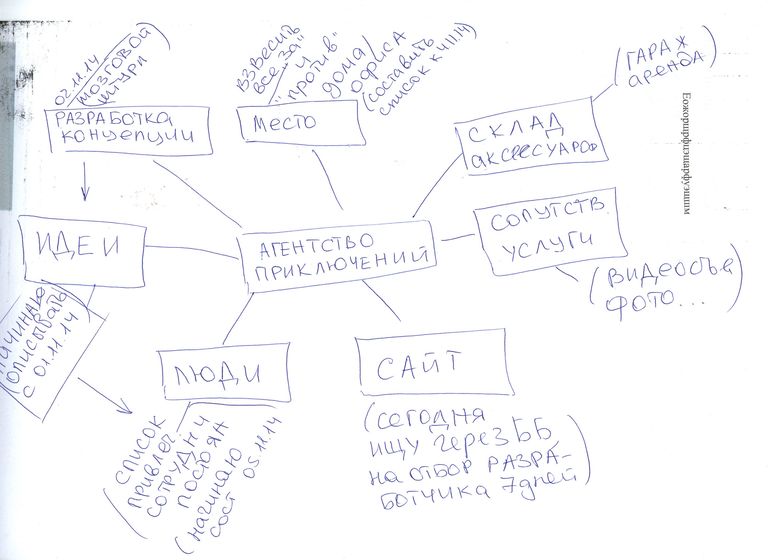 02.11.14
МОЗГОВОЙ
ШТУРМ
РАЗРАБОТКА
КОНЦЕПЦИИ
ВЗВЕСИТЬ
ВСЕ "ЗА"
И
"ПРОТИВ"
ДОМА/
ОФИСА
(СОСТАВИТЬ
СПИСОК К 4.11.14)
МЕСТО
(ГАРАЖ
АРЕНДА)
СКЛАД
АКСЕССУАРОВ
СОПУТСТВ.
УСЛУГИ
(ВИДЕОСЪЕ
ФОТО...)
АГЕНТСТВО
ПРИКЛЮЧЕНИЙ
ИДЕИ
НАЧИНАЮ
ОПИСЫВАТЬ
С 01.11.14
ЛЮДИ
(СПИСОК
ПРИВЛЕЧ.
СОТРУДН И
ПОСТОЯН
(НАЧИНАЮ
СОСТ 05.11.14
САЙТ
(СЕГОДНЯ
ИЩУ ЧЕРЕЗ ББ
НА ОТБОР РАЗРА-
БОТЧИКА 7 ДНЕЙ)